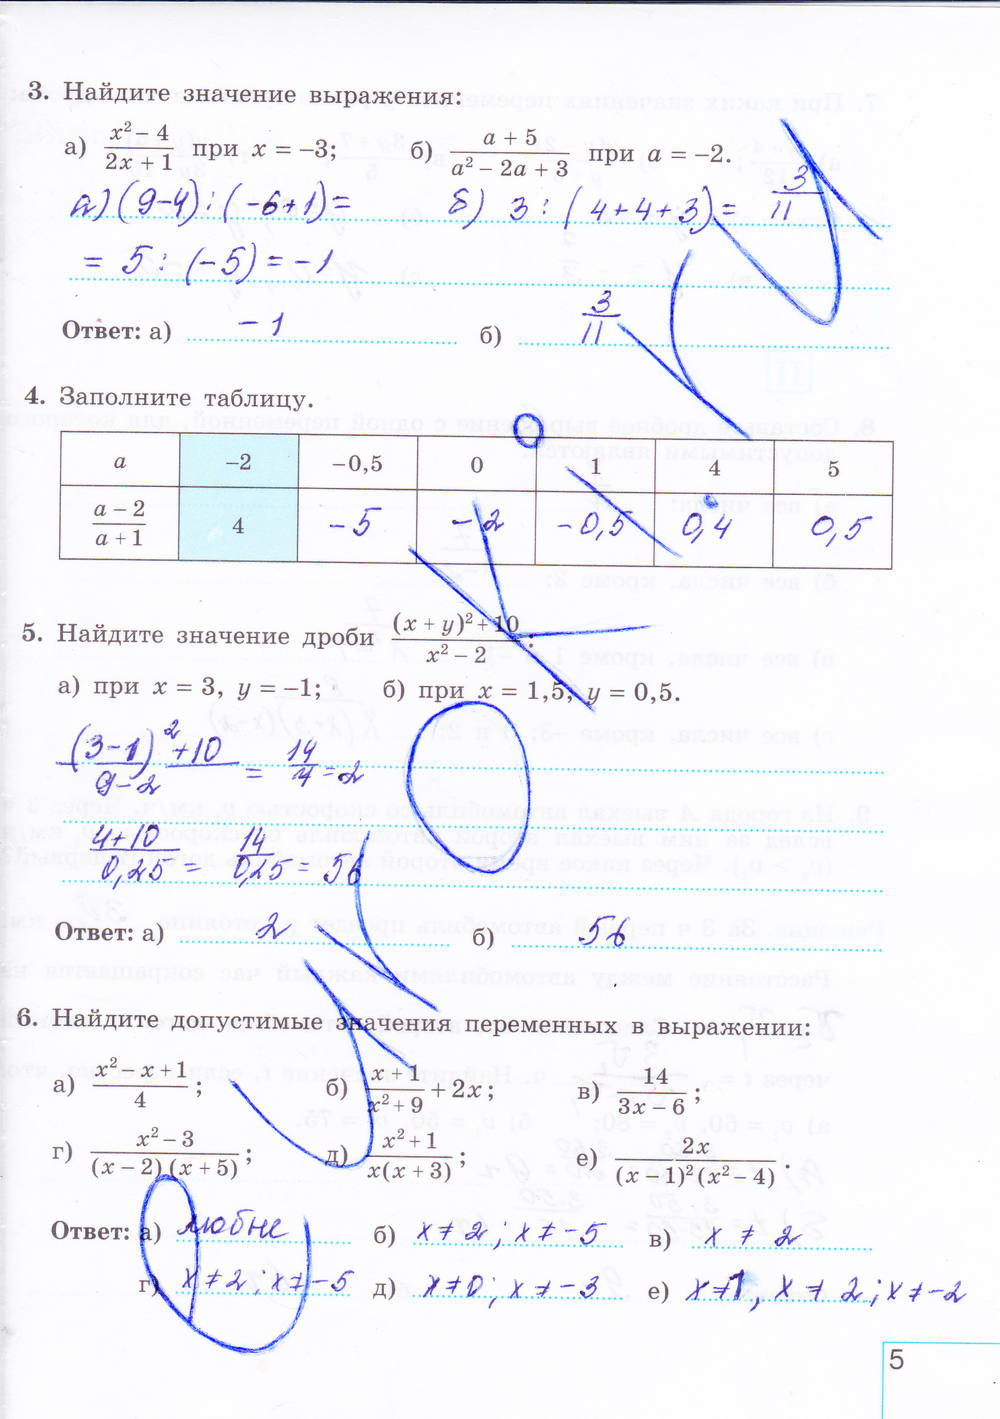 3. Найдите значение выражения:
а) (x² – 4)/(2x + 1) при x = –3; б) (a + 5)/(a² – 2a + 3) при a = –2.
а) (9-4) : (-6+1) = б) 3 : (4+4+3) = 3/11
= 5 : (-5) = -1
Ответ: а) -1 б) 3/11
4. Заполните таблицу.
a –2 –0,5 0 1 4 5
(a – 2)/(a + 1) 4 -5 -2 -0,5 0,4 0,5
5. Найдите значение дроби ((x + y)² + 10)/(x² – 2):
а) при x = 3, y = –1; б) при x = 1,5, y = 0,5.
((3-1)² + 10)/(9-2) = 14/7 = 2
(4+10)/0,25 = 14/0,25 = 56
Ответ: а) 2 б) 56
6. Найдите допустимые значения переменных в выражении:
а) (x² – x + 1)/4; б) (x + 1)/(x² + 9) + 2x; в) 14/(3x – 6);
г) (x² – 3)/((x – 2)(x + 5)); д) (x² + 1)/(x(x + 3)); е) 2x/((x – 1)²(x² – 4)).
Ответ: а) любые б) x ≠ 2; x ≠ -5 в) x ≠ 2
г) x ≠ 2; x ≠ -5 д) x ≠ 0; x ≠ -3 е) x ≠ 1, x ≠ 2; x ≠ -2
5